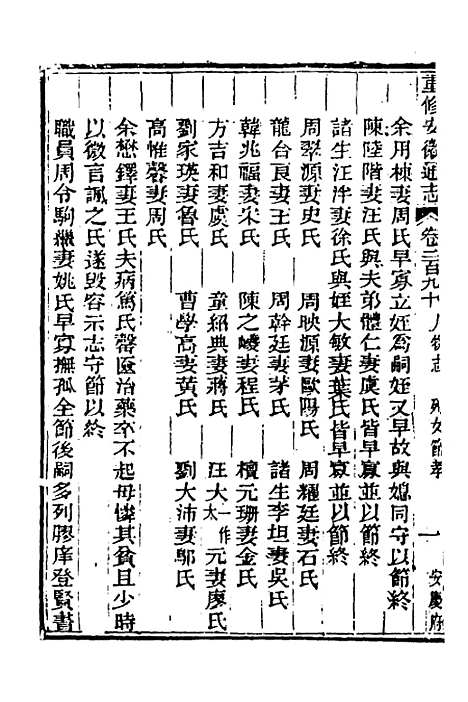 重修安徽通志 卷二百九十 人物志 列女節孝 一 安慶府
余用棟妻周氏早寡立姪爲嗣姪又早故與媳同守以節終
陳陸階妻汪氏與夫弟體仁妻虞氏皆早寡並以節終
諸生江泮妻徐氏與姪大敏妻葉氏皆早寡並以節終
周翠源妻史氏 周映源妻歐陽氏 周耀廷妻石氏
龍台良妻王氏 周幹廷妻茅氏 諸生李坦妻吳氏
韓兆福妻朱氏 陳之嶁妻程氏 檀元珊妻金氏
方吉和妻虞氏 童紹典妻蔣氏 汪大一作太元妻廖氏
劉家瑛妻魯氏 曹學高妻黃氏 劉大沛妻鄔氏
高惟馨妻周氏
余懋鐸妻王氏夫病篤氏罄匳治藥卒不起母憐其貧且少時
以微言諷之氏遂毀容示志守節以終
職員周令駒繼妻姚氏早寡撫孤全節後嗣多列膠庠登賢書